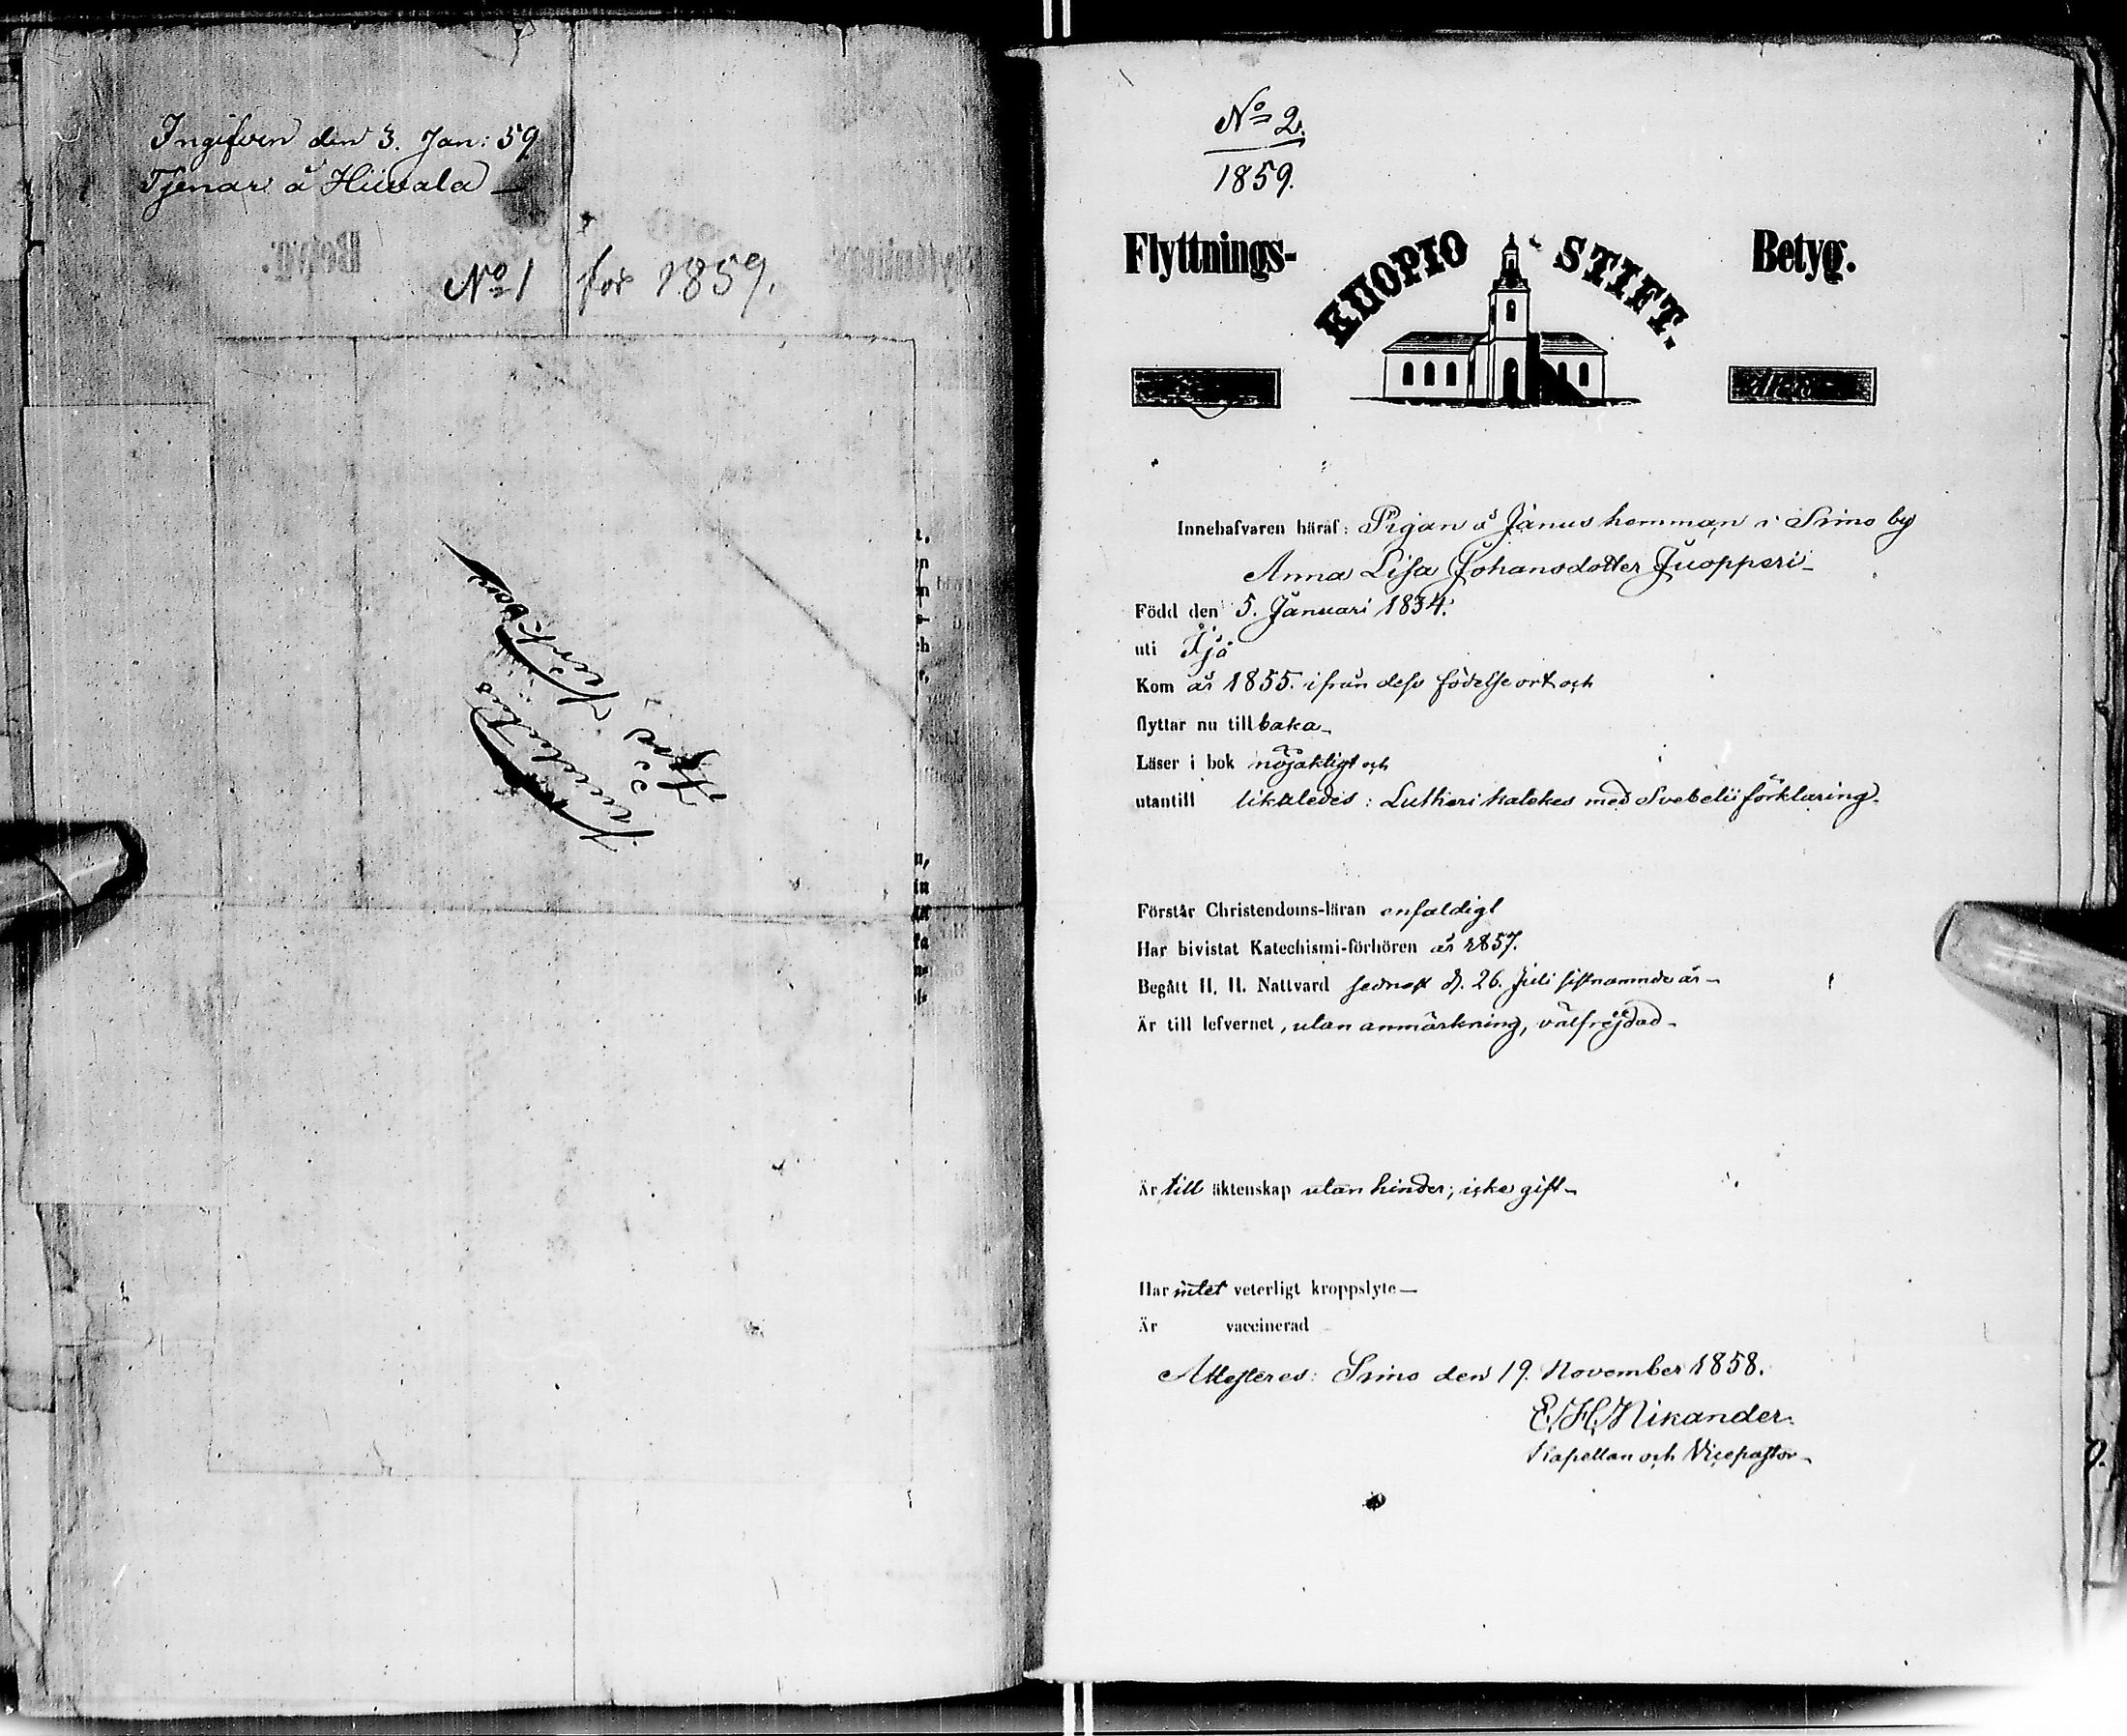 Ingifven den 3. Jan: 59
Tjenar å Hiivala
No 1 för 1859.
No 2.
1859.
Flyttnings-
KUOPIO STIFT.
Betyg.
Innehafvaren häraf: Pigan å Jänus hemman i Simo by
Anna Lisa Johansdotter Juopperi
Född den 5. Januari 1834.
uti Ijå
Kom år 1855. ifrån dess födelseort och
flyttar nu tillbaka
Läser i bok nöjaktigt och
utantill likaledes: Lutheri katekes med Svebelii förklaring.
Förstår Christendoms-läran enfaldigt
Har bivistat Katechismi-förhören år 1857.
Begått H. H. Nattvard sednast d. 26. Juli sistnämnde år
Är till lefvernet, utan anmärkning, välfrejdad
Är till äktenskap utan hinder; icke gift
Har intet veterligt kroppslyte
Är vaccinerad
Attesteres: Simo den 19. November 1858.
E. H. Nikander.
Kapellan och Vicepastor